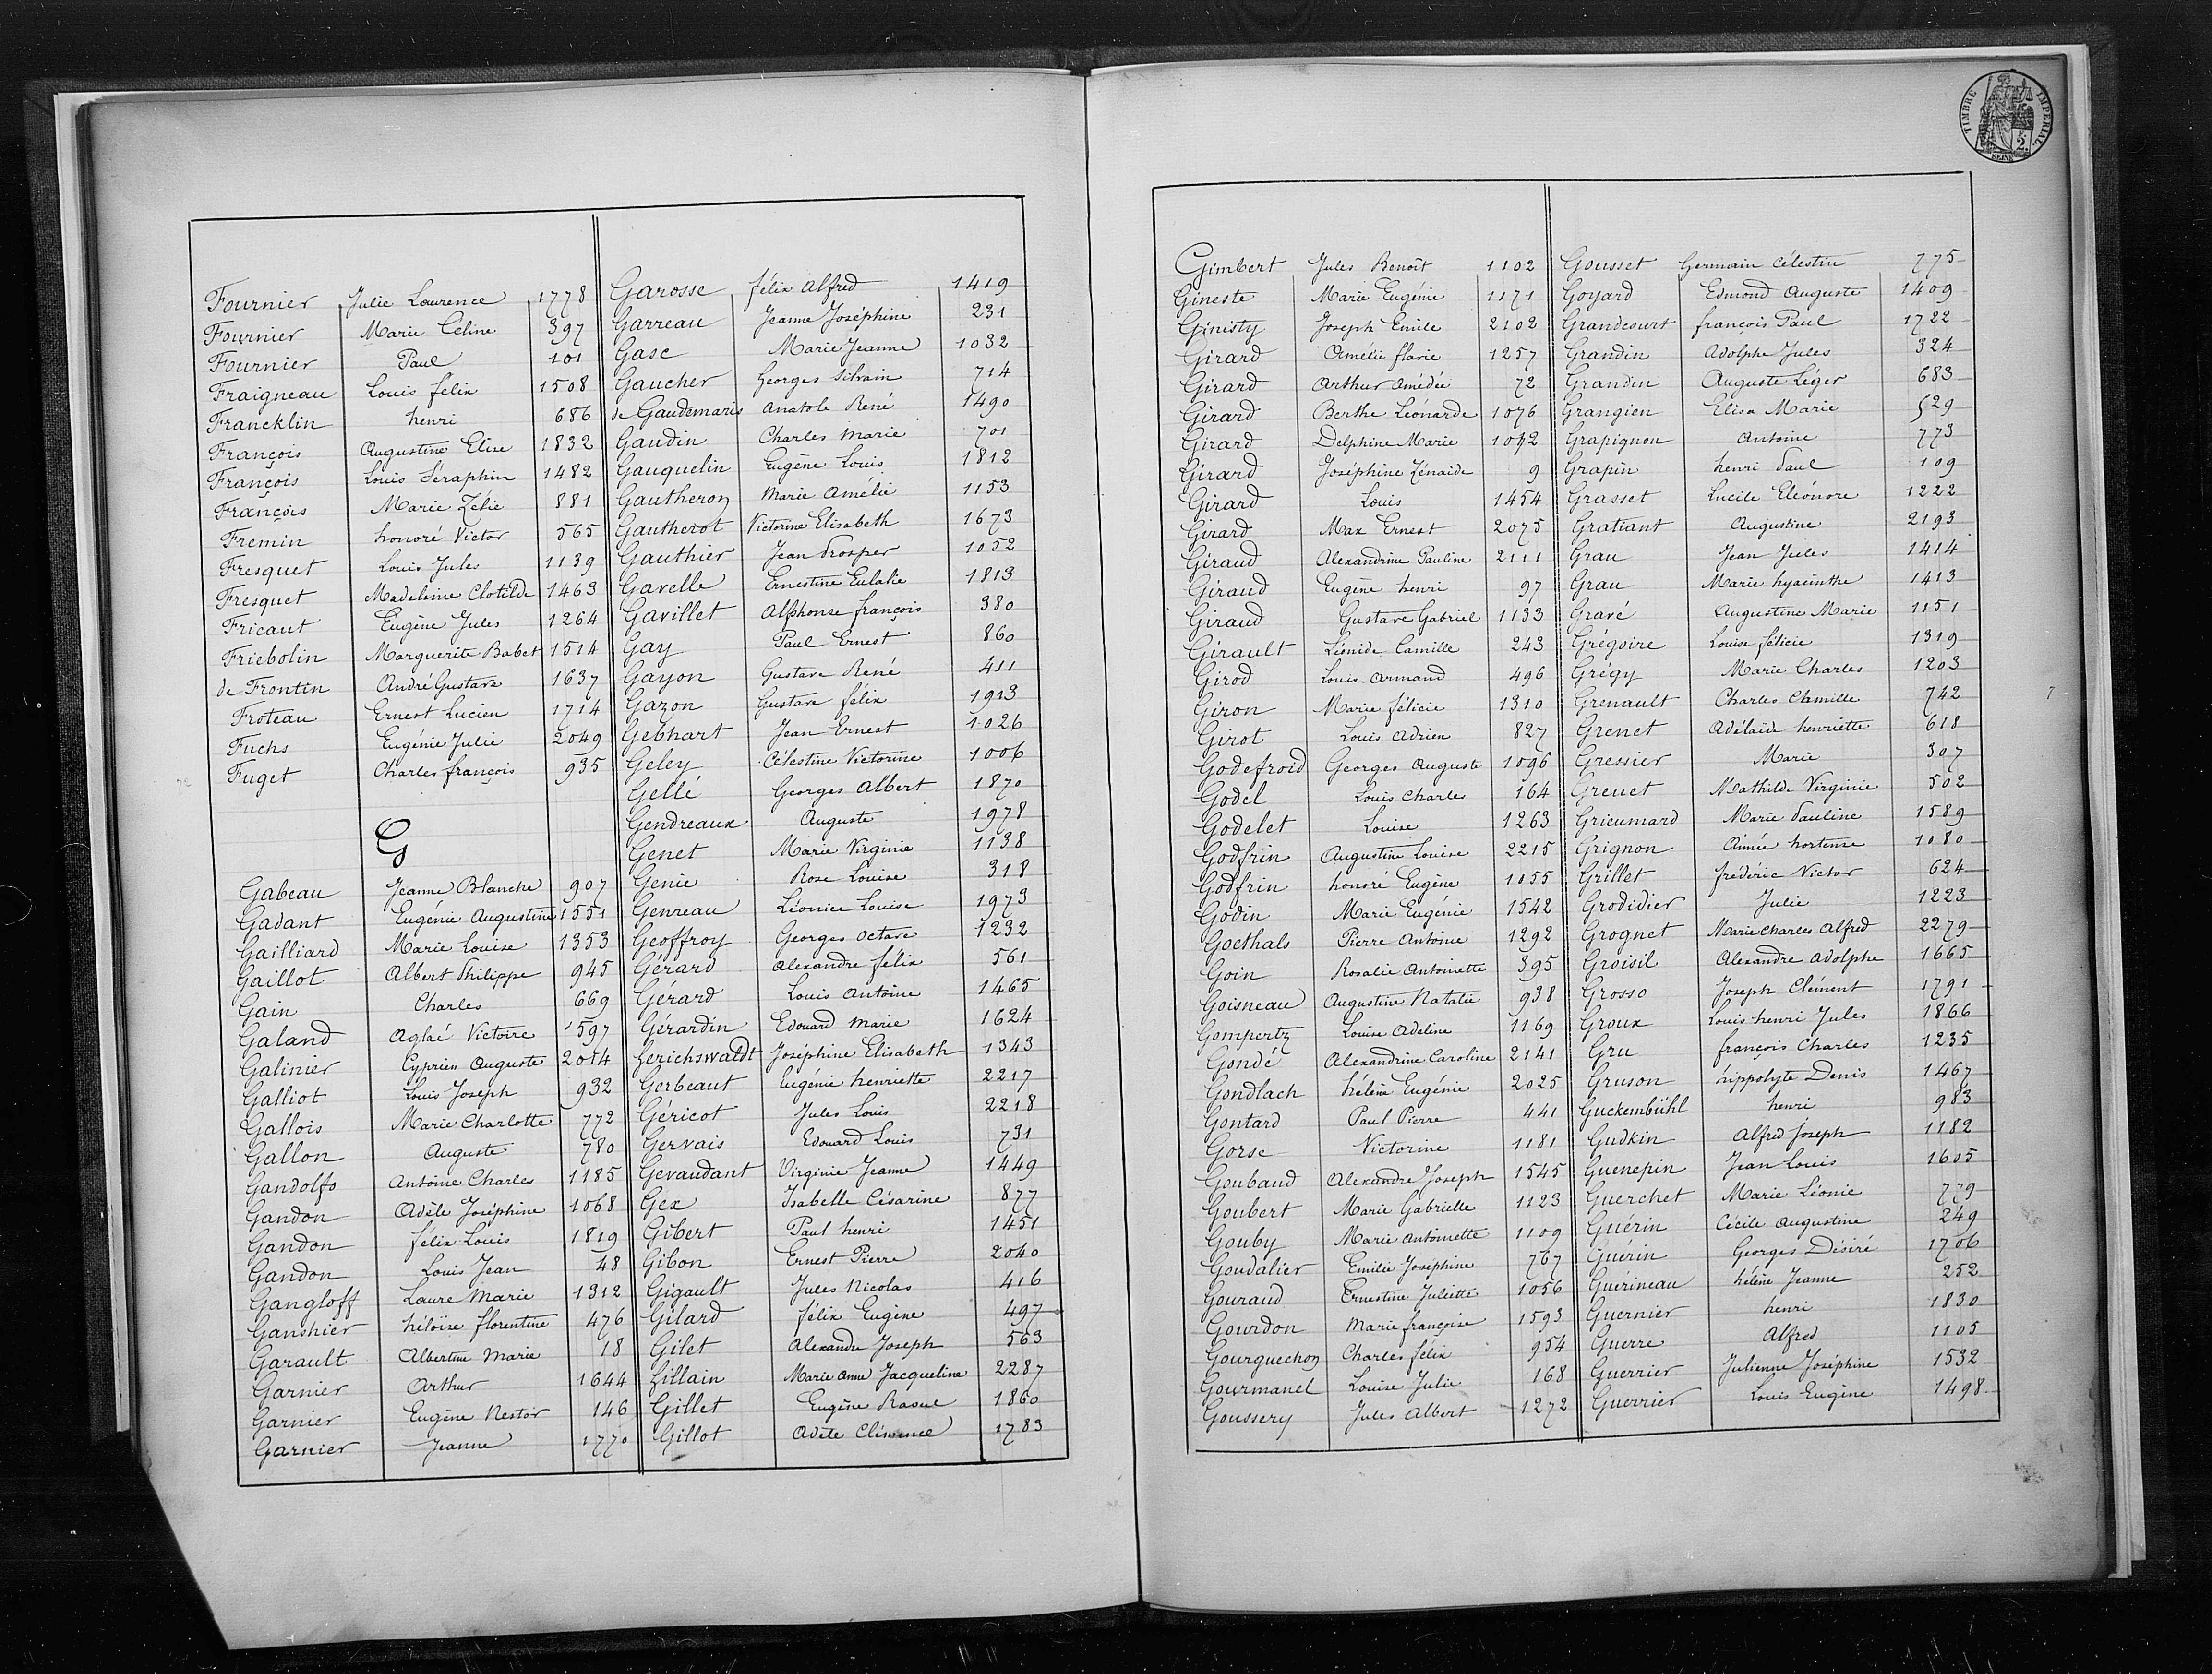 Fournier Julie Laurence 1778
Fournier Marie Celine 397
Fournier Paul 101
Fraigneau Louis félix 1508
Francklin henri 686
François Augustine Elise 1832
François Louis Séraphin 1482
François Marie Zélie 881
Fremin honoré Victor 565
Fresquet Louis Jules 1139
Fresquet Madeleine Clotilde 1463
Fricaut Eugène Jules 1264
Friebolin Marguerite Babet 1514
de Frontin André Gustave 1637
Froteau Ernest Lucien 1714
Fuchs Eugénie Julie 2049
Fuget Charles françois 935
G
Gabeau Jeanne Blanche 907
Gadant Eugénie Augustine 1551
Gailliard Marie Louise 1353
Gaillot Albert Philippe 945
Gain Charles 669
Galand Aglaé Victoire 1597
Galinier Cyprien Auguste
Galliot Louis Joseph 932
Gallois Marie Charlotte 772
Gallon Auguste 780
Gandolfo Antoine Charles 1185
Gandon Adèle Joséphine 1068
Gandon félix Louis 1819
Gandon Louis Jean 48
Gangloff Laure Marie 1312
Ganshier héloïse florentine 476
Garault Albertine Marie 18
Garnier Arthur 1644
Garnier Eugène Nestor 146
Garnier Jeanne 1770
Garosse félix Alfred 1419
Garreau Jeanne Joséphine 231
Gasc Marie Jeanne 1032
Gaucher Georges Silvain 714
de Gaudemaris Anatole René 1490
Gaudin Charles Marie 701
Gauquelin Eugène Louis 1812
Gautheron Marie Amélie 1153
Gautherot Victorine Elisabeth 1673
Gauthier Jean Prosper 1052
Gavelle Ernestine Eulalie 1813
Gavillet Alphonse françois 380
Gay Paul Ernest 860
Gayon Gustave René 411
Gazon Gustave félix 1913
Gebhart Jean Ernest 1026
Geley Célestine Victorine 1006
Gellé Georges Albert 1870
Gendreaux Auguste 1978
Genet Marie Virginie 1138
Genie Rose Louise 318
Genreau Léonice Louise 1973
Geoffroy Georges Octave 1232
Gérard Alexandre félix 561
Gérard Louis Antoine 1465
Gérardin Edouard Marie 1624
Gerichswaldt Joséphine Elisabeth 1343
Gerbeaut Eugénie henriette 2217
Géricot Jules Louis 2218
Gervais Edouard Louis 731
Gevaudant Virginie Jeanne 1449
Gex Isabelle Césarine 877
Gibert Paul henri 1451
Gibon Ernest Pierre 2040
Gigault Jules Nicolas 416
Gilard félix Eugène 497
Gilet Alexandre Joseph 563
Gillain Marie Anne Jacqueline 2287
Gillet Eugène Raoul 1860
Gillot Adèle Clémence 1783
TIMBRE IMPERIAL
SEINE
Gimbert Jules Benoît 1102
Gineste Marie Eugénie 1171
Ginisty Joseph Emile 2102
Girard Amélie flavie 1257
Girard Arthur Amédée 72
Girard Berthe Léonarde 1076
Girard Delphine Marie
Girard Joséphine Zénaide 9
Girard Louis 1454
Girard Max Ernest 2075
Giraud Alexandrine Pauline 2111
Giraud Eugène henri 97
Giraud Gustave Gabriel 1133
Girault Léonide Camille 243
Girod Louis Armand 496
Giron Marie félicie 1310
Girot Louis Adrien 827
Godefroid Georges Auguste 1096
Godel Louis Charles 164
Godelet Louise 1263
Godfrin Augustine Louise 2215
Godfrin honoré Eugène 1055
Godin Marie Eugénie 1542
Goethals Pierre Antoine 1292
Goin Rosalie Antoinette 395
Goisneau Augustine Natalie 938
Gompertz Louise Adeline 1169
Gondé Alexandrine Caroline 2141
Gondlach hélène Eugénie 2025
Gontard Paul Pierre 441
Gorse Victorine 1181
Goubaud Alexandre Joseph 1545
Goubert Marie Gabrielle 1123
Gouby Marie Antoinette 1109
Goudalier Emilie Josephine 767
Gouraud Ernestine Juliette 1056
Gourdon Marie françoise 1593
Gourguechon Charles félix 954
Gourmanel Louise Julie 168
Goussery Jules Albert 1272
Gousset Germain Célestin 775
Goyard Edmond Auguste 1409
Grandcourt françois Paul 1722
Grandin Adolphe Jules 324
Grandin Auguste Léger 683
Grangien Elisa Marie 529
Grapignon Antoine 773
Grapin henri Paul 109
Grasset Lucile Eléonore 1222
Gratiant Augustine 2193
Grau Jean Jules 1414
Grau Marie hyacinthe 1413
Gravé Augustine Marie 1151
Grégoire Louise félicie 1319
Grégy Marie Charles 1203
Grenault Charles Camille 742
Grenet Adélaïde henriette 618
Gressier Marie 307
Greuet Mathilde Virginie 502
Grieumard Marie Pauline 1589
Grignon Aimée hortense 1080
Grillet frédéric Victor 624
Grodidier Julie 1223
Grognet Marie Charles Alfred 2279
Groisil Alexandre Adolphe 1665
Grosso Joseph Clément 1791
Groux Louis henri Jules 1866
Gru françois Charles 1235
Gruson hippolyte Denis 1467
Guckembühl henri 983
Gudkin Alfred Joseph 1182
Guenepin Jean Louis 1605
Guerchet Marie Léonie 779
Guérin Cécile Augustine 249
Guérin Georges Désiré 1706
Guerineau hélène Jeanne 252
Guernier henri 1830
Guerre Alfred 1105
Guerrier Julienne Joséphine 1532
Guerrier Louis Eugène 1498
7